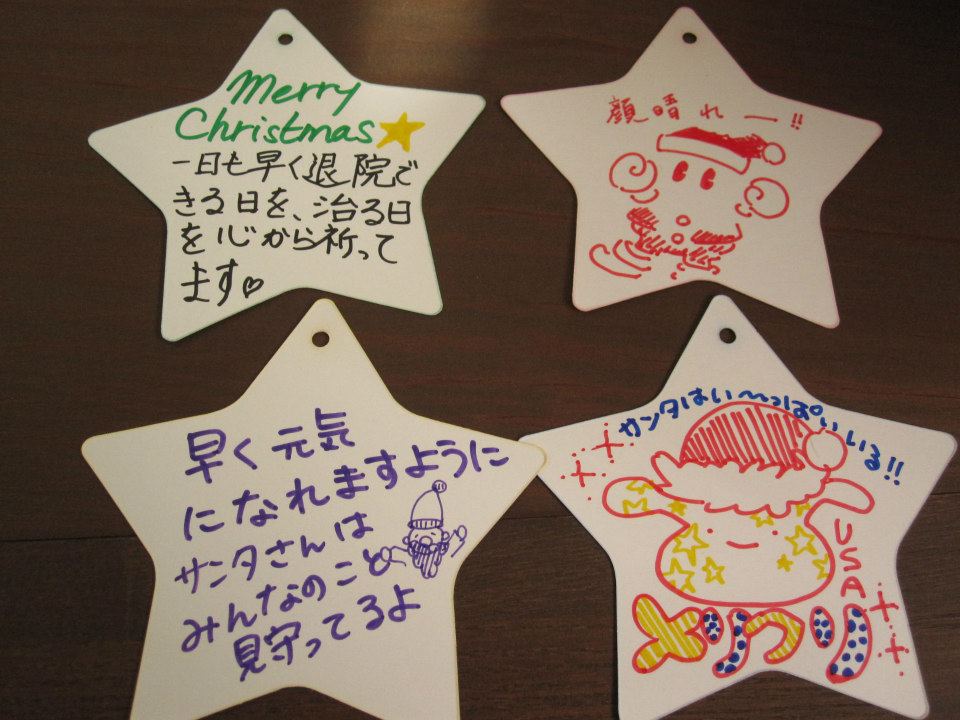 Merry
Christmas
一日も早く退院で
きる日を、治る日
を心から祈って
ます♡
顔晴れー!!
早く元気
になれますように
サンタさんは
みんなのこと
見守ってるよ
サンタはい〜っぱいいる!!
USA
メリクリ